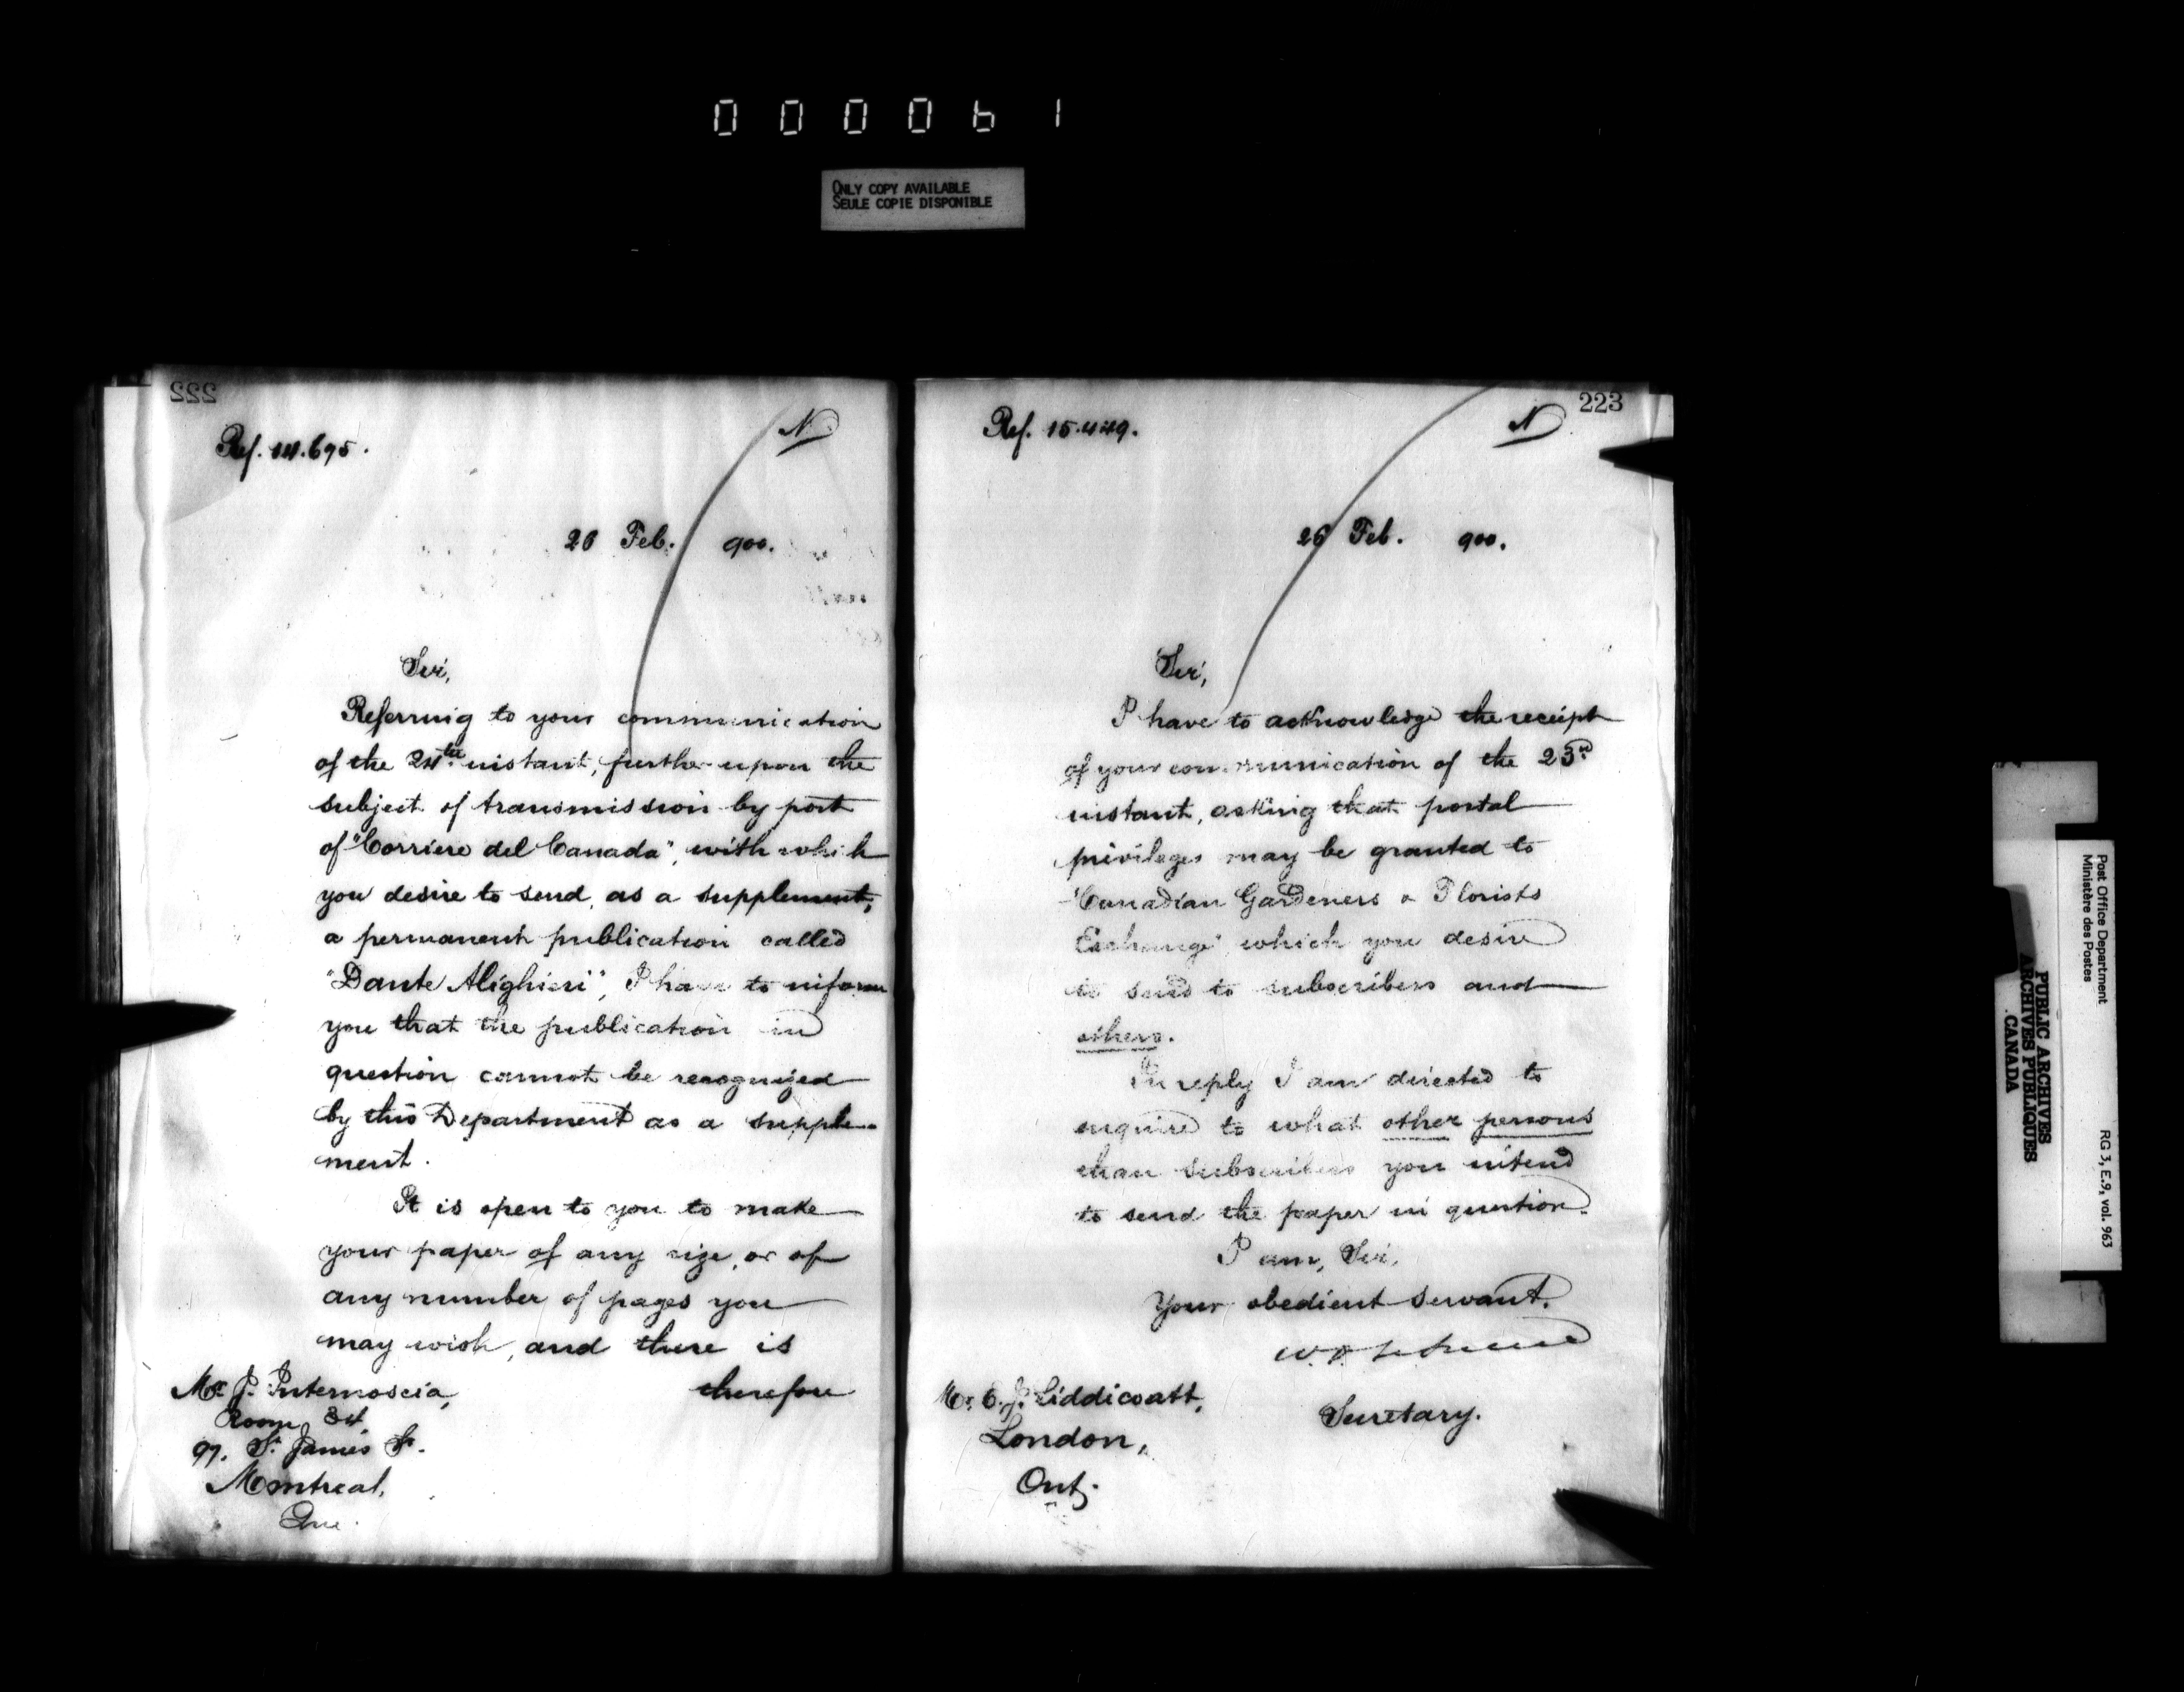 000061
ONLY COPY AVAILABLE
SEULE COPIE DISPONIBLE
222
Ref. 14.695.
N
26 Feb. 900.
Sir,
Referring to your communication
of the 24th instant, further upon the
subject of transmission by post
of "Corriere del Canada", with which
you desire to send, as a supplement,
a permanent publication called
"Dante Alighieri", I have to inform
you that the publication in
question cannot be recognized
by this Department as a supple-
ment.
It is open to you to make
your paper of any size, or of
any number of pages you
may wish, and there is
therefore
Mr. J. Internoscia,
Room 34,
97. St. James St.
Montreal,
Que.
223
Ref. 15.449.
N
26 Feb. 900.
Sir,
I have to acknowledge the receipt
of your communication of the 23rd
instant, asking that postal
privileges may be granted to
"Canadian Gardeners & Florists
Exchange" which you desire
to send to subscribers and
others.
In reply I am directed to
enquire to what other persons
than subscribers you intend
to send the paper in question.
I am, Sir,
Your obedient servant.
Secretary.
Mr. E. J. Liddicoatt,
London,
Ont.
Post Office Department
Ministère des Postes
RG 3, E.9, vol. 963
PUBLIC ARCHIVES
ARCHIVES PUBLIQUES
CANADA